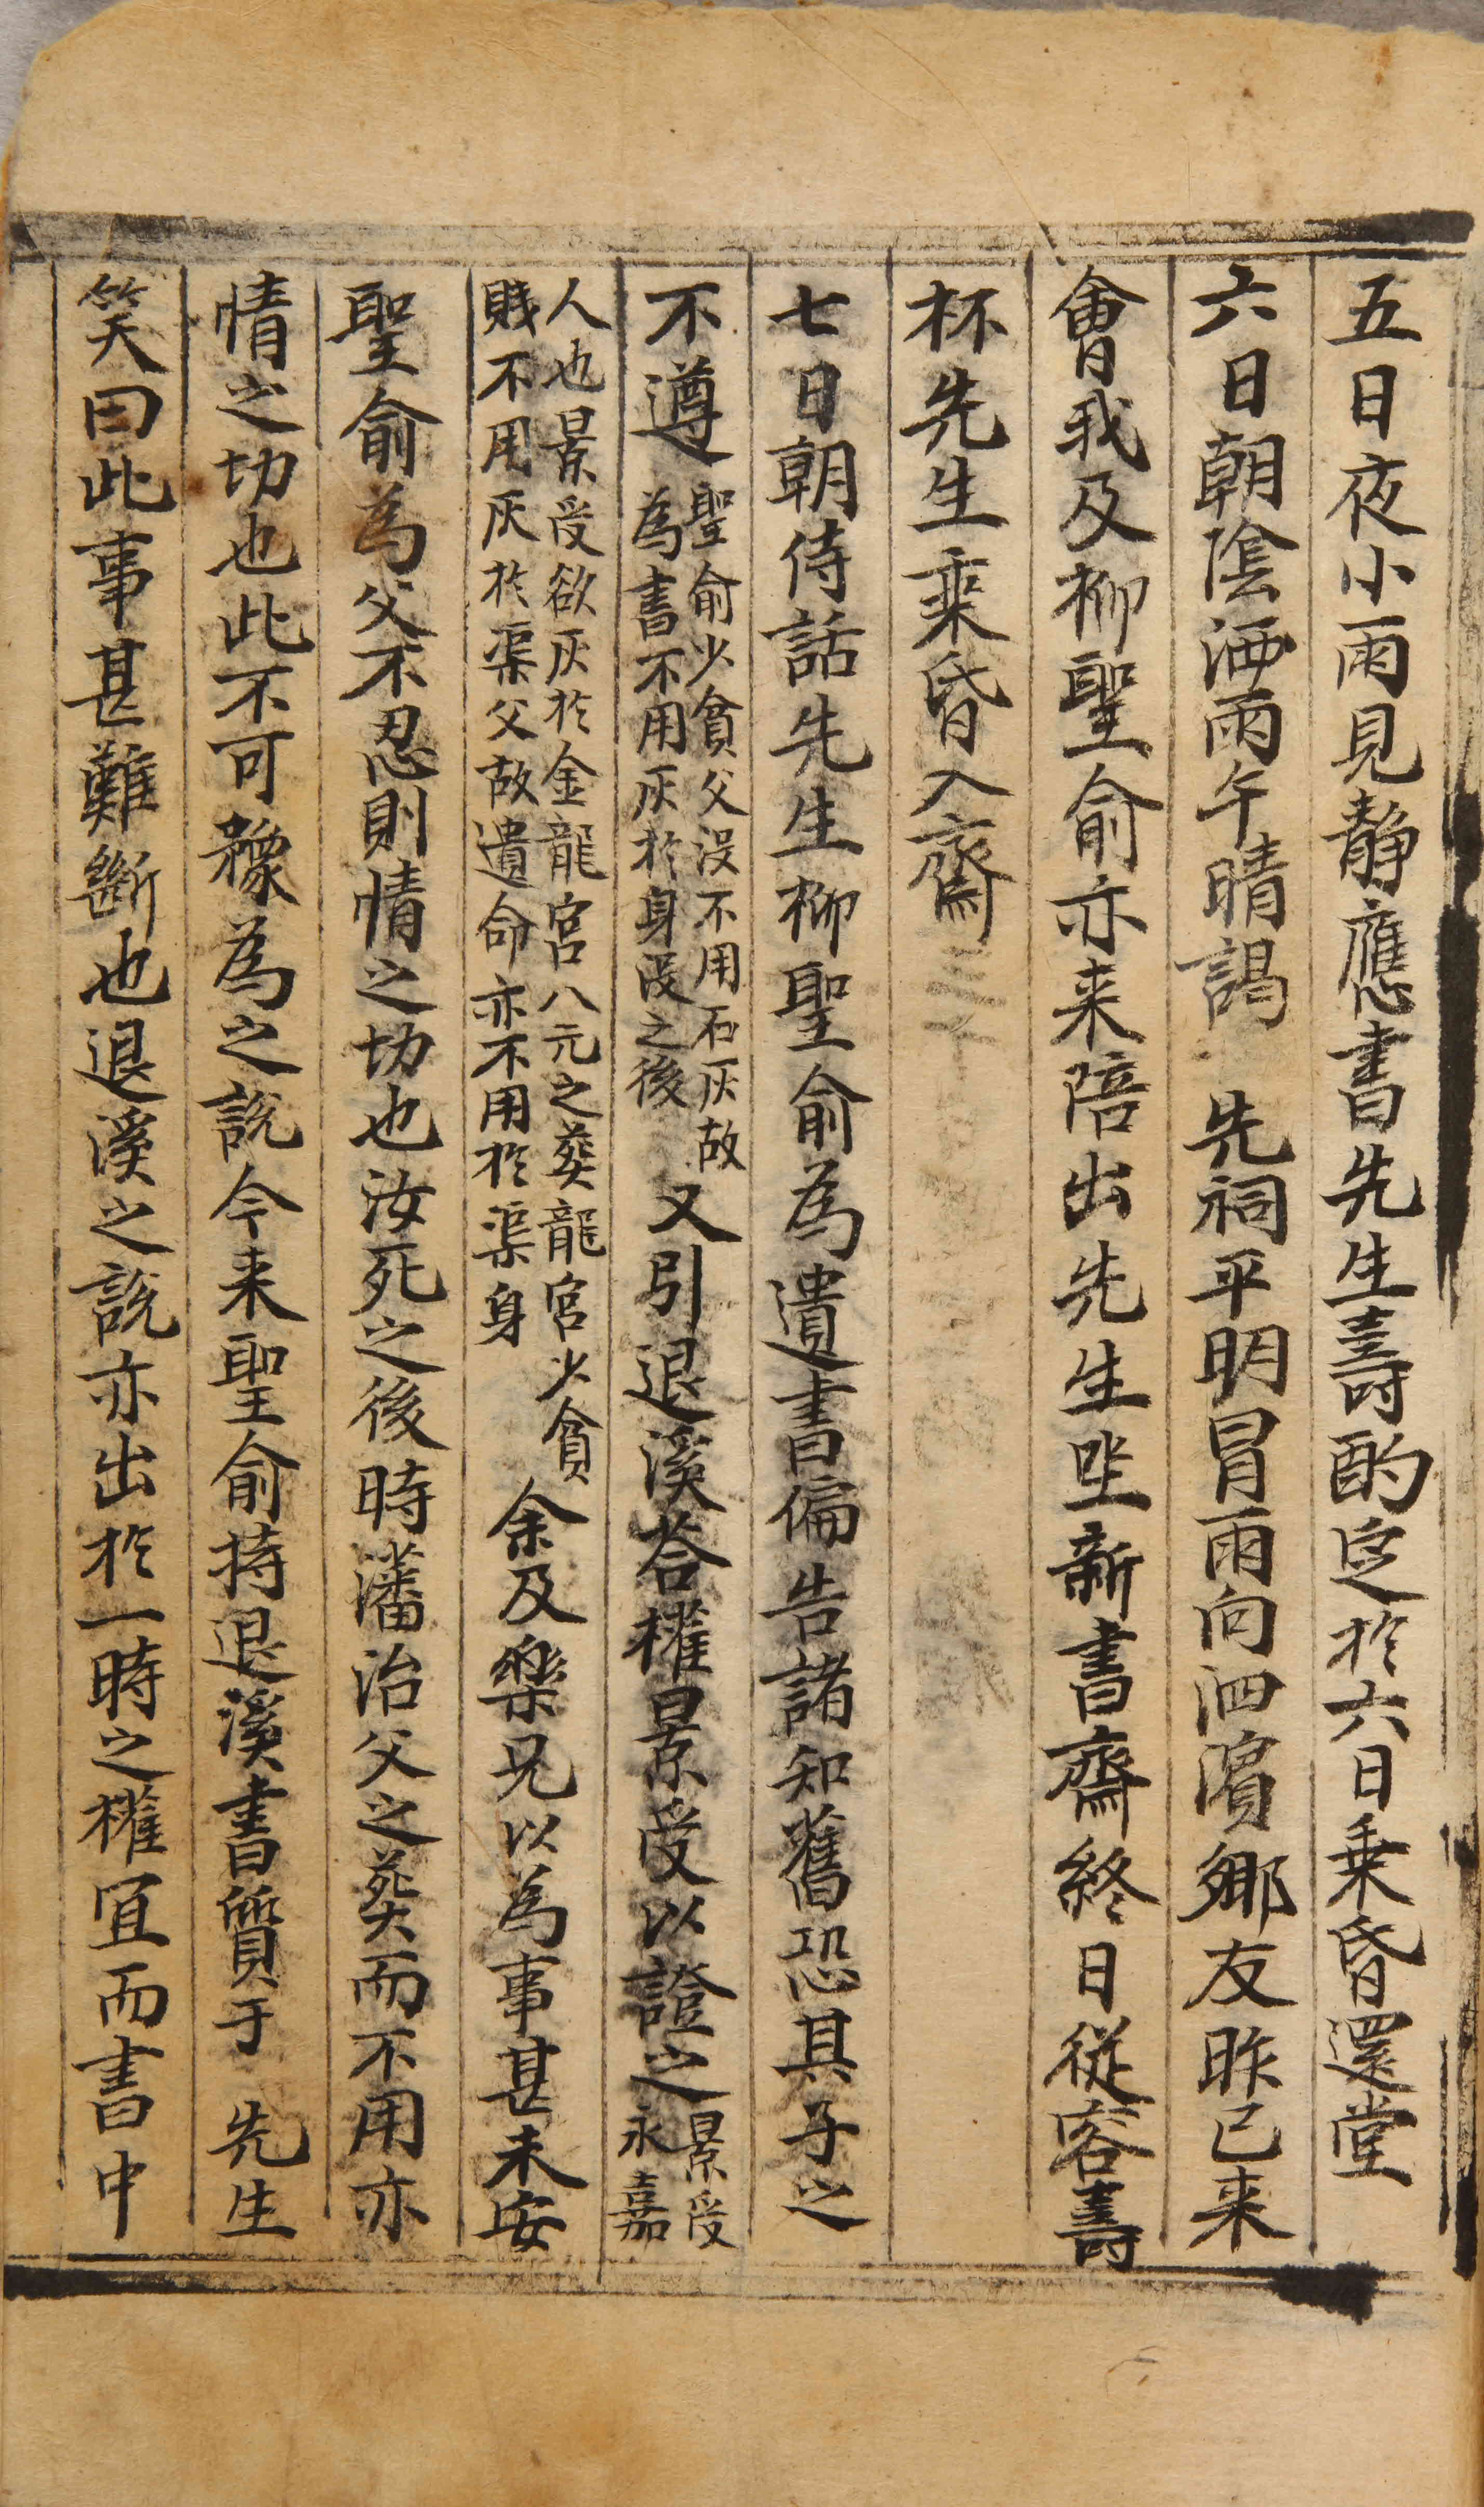 五日夜小雨見靜應書先生壽酌定於六日乗昏還堂
六日朝陰洒雨午晴謁 先祠平明冒雨向泗濱鄉友昨已来
會我及柳聖俞亦来陪出先生坐新書齋終日從容壽
杯先生乘昏入齋
七日朝侍話先生柳聖俞為遺書偏告諸知舊恐其子之
不遵聖俞少貧父沒不用石灰故為書不用灰於身沒之後又引退溪答權景受以證之景受永嘉
人也景受欲灰於金龍宮八元之葬龍宮少貧賤不用灰於渠父故遺命亦不用於渠身余及樂兄以為事甚未安
聖俞為父不忍則情之切也汝死之後時潘治父之葬而不用亦
情之切也此不可豫為之說今来聖俞持退溪書質于 先生
笑曰此事甚難斷也退溪之說亦出於一時之權宜而書中